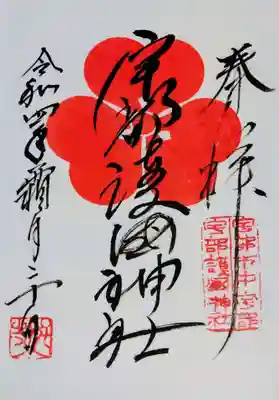 奉拝
宇部護國神社
令和四年霜月二十日
宇部市中宇部
宇部護國神社